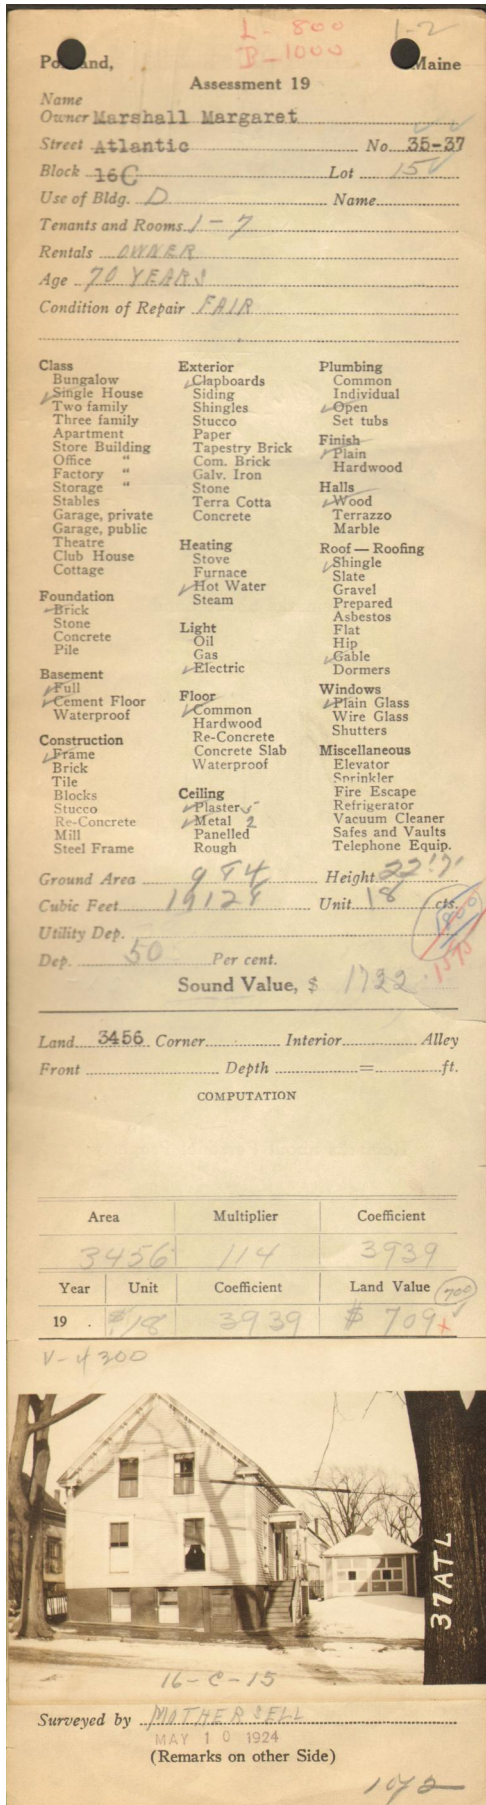 L- 800 1-2
B-1000
Portland, Maine
Assessment 19
Name
Owner Marshall Margaret
Street Atlantic No. 35-37
Block 16C Lot 15
Use of Bldg. D Name
Tenants and Rooms 1-7
Rentals OWNER
Age 70 YEARS
Condition of Repair FAIR
Class
Bungalow
Single House
Two family
Three family
Apartment
Store Building
Office "
Factory "
Storage "
Stables
Garage, private
Garage, public
Theatre
Club House
Cottage
Foundation
Brick
Stone
Concrete
Pile
Basement
Full
Cement Floor
Waterproof
Construction
Frame
Brick
Tile
Blocks
Stucco
Re-Concrete
Mill
Steel Frame
Exterior
Clapboards
Siding
Shingles
Stucco
Paper
Tapestry Brick
Com. Brick
Galv. Iron
Stone
Terra Cotta
Concrete
Heating
Stove
Furnace
Hot Water
Steam
Light
Oil
Gas
Electric
Floor
Common
Hardwood
Re-Concrete
Concrete Slab
Waterproof
Ceiling
Plaster 5
Metal 2
Panelled
Rough
Plumbing
Common
Individual
Open
Set tubs
Finish
Plain
Hardwood
Halls
Wood
Terrazzo
Marble
Roof — Roofing
Shingle
Slate
Gravel
Prepared
Asbestos
Flat
Hip
Gable
Dormers
Windows
Plain Glass
Wire Glass
Shutters
Miscellaneous
Elevator
Sprinkler
Fire Escape
Refrigerator
Vacuum Cleaner
Safes and Vaults
Telephone Equip.
Ground Area Height
Cubic Feet Unit 18 cts.
Utility Dep.
Dep. 50 Per cent.
Sound Value, $ 1722
Land 3456 Corner Interior Alley
Front Depth = ft.
COMPUTATION
Area Multiplier Coefficient
3456 114 3939
Year Unit Coefficient Land Value 700
19 . $/18 3939 $ 709
V-4300
37ATL
16-C-15
Surveyed by MOTHERSELL
MAY 10 1924
(Remarks on other Side)